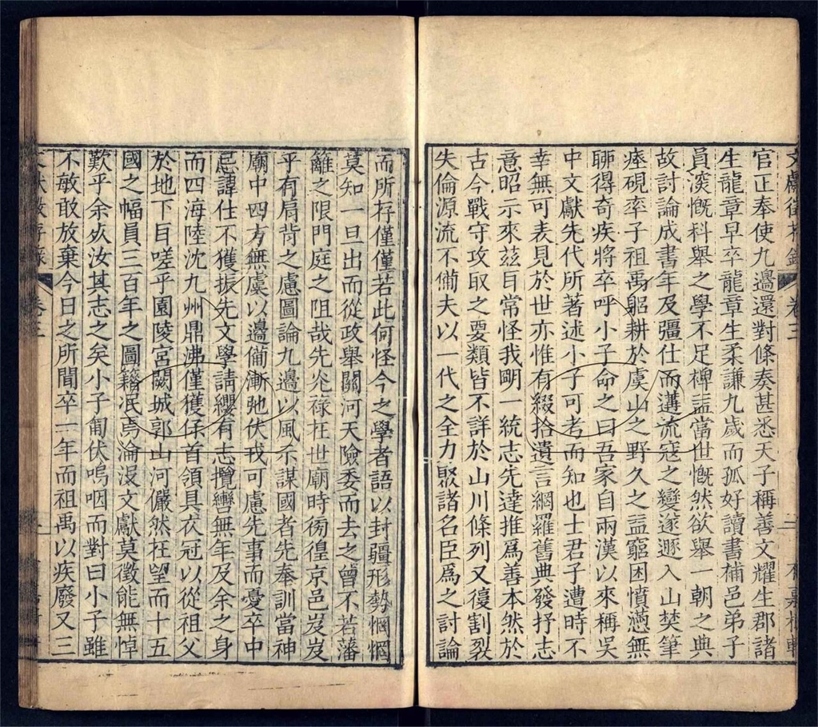 官正奉使九邊還對條奏甚悉天子稱善文耀生郡諸
生龍章早卒龍章生柔謙九歲而孤好讀書補邑弟子
員深慨科舉之學不足裨益當世慨然欲舉一朝之典
故討論成書年及彊仕而遘流寇之變遂遯入山焚筆
瘞硯率子祖禹躬耕於虞山之野久之益窮困憤懣無
聊得奇疾將卒呼小子命之曰吾家自兩漢以來稱吳
中文獻先代所著述小子可考而知也士君子遭時不
幸無可表見於世亦惟有綴拾遺言網羅舊典發抒志
意昭示來茲耳嘗怪我明一統志先達推爲善本然於
古今戰守攻取之要類皆不詳於山川條列又復割裂
失倫源流不備夫以一代之全力聚諸名臣爲之討論
而所存僅僅若此何怪今之學者語以封疆形勢惘惘
莫知一旦出而從政舉關河天險委而去之曾不若藩
籬之限門庭之阻哉先光祿在世廟時徬徨京邑岌岌
乎有肩背之慮圖論九邊以風示謀國者先奉訓當神
廟中四方無虞以邊備漸弛伏戎可慮先事而憂卒中
忌諱仕不獲振先文學請纓有志攬轡無年及余之身
而四海陸沈九州鼎沸僅獲保首領具衣冠以從祖父
於地下目嗟乎園陵宮闕城郭山河儼然在望而十五
國之幅員三百年之圖籍泯焉淪沒文獻莫徵能無悼
歎乎余死汝其志之矣小子匍伏嗚咽而對曰小子雖
不敏敢放棄今日之所聞卒一年而祖禹以疾廢又三